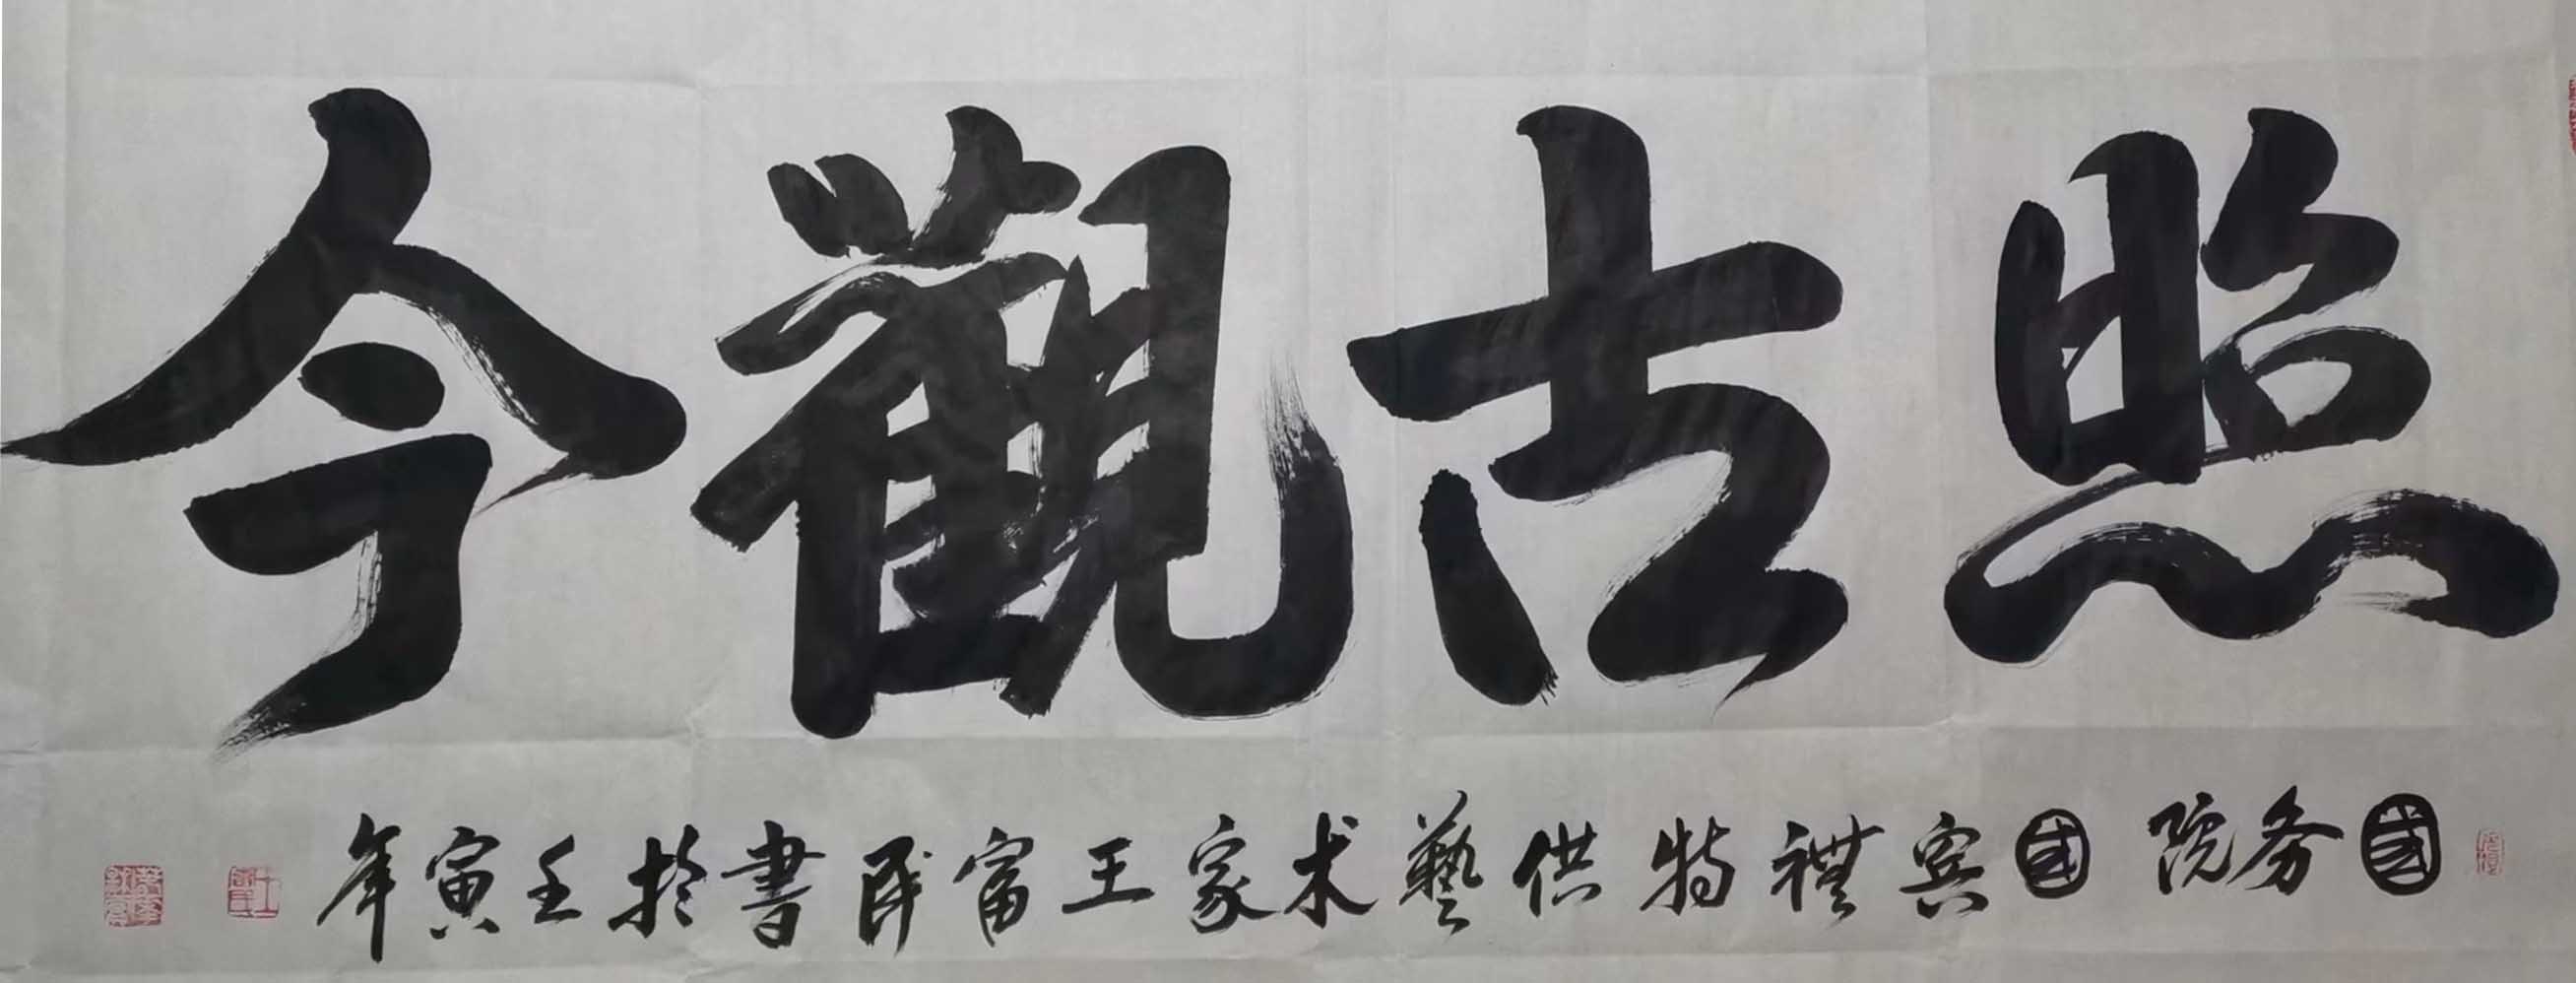 照古觀今
國务院國宾禮特供藝术家王富民書於壬寅年